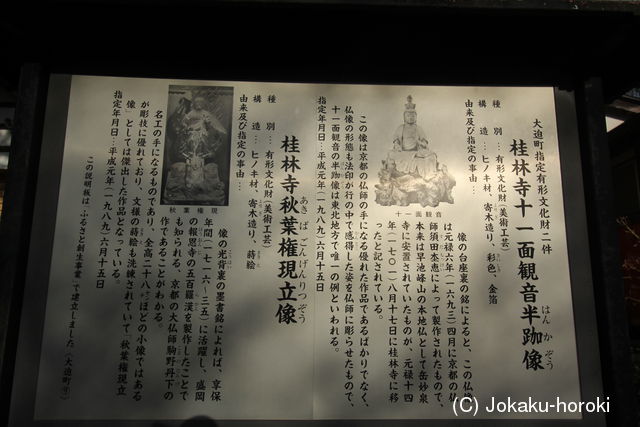 大迫町指定有形文化財二件
桂林寺十一面観音半跏像
はんかぞう
種　別：有形文化財(美術工芸)
構　造：ヒノキ材、寄木造り、彩色、金箔
由来及び指定の事由：
像の台座裏の銘によると、この仏像
は元禄六年(一六九三)四月に京都の仏
師須田杢恵によって製作されたもので、
本来は早池峰山の本地仏として岳妙泉
寺に安置されていたものが、元禄十四
年(一七〇一)八月十七日に桂林寺に移
ったと記されている。
この像は京都の仏師の手になる優れた作品であるばかりでなく、
仏像の形態も法印が行の中で感得した姿を仏師に彫らせたもので、
十一面観音の半跏像は東北地方で唯一の例といわれる。
指定年月日：平成元年(一九八九)六月十五日
十一面観音
桂林寺秋葉権現立像
あきばごんげんりつぞう
種　別：有形文化財(美術工芸)
構　造：ヒノキ材、寄木造り、蒔絵
由来及び指定の事由：
像の光背裏の墨書銘によれば、享保
年間(一七一六〜三五)に活躍し、盛岡
の報恩寺の五百羅漢を製作したことで
も知られる、京都の大仏師駒野丹下の
作であることがわかる。
名工の手になるものであり、全高二十八㌢ほどの小像ではある
が彫技に優れており、文様の蒔絵も洗練されていて、秋葉権現立
像としては傑出した作品となっている。
指定年月日：平成元年(一九八九)六月十五日
秋葉権現
この説明板は「ふるさと創生事業」で建立しました(大迫町)
(C) Jokaku-horoki